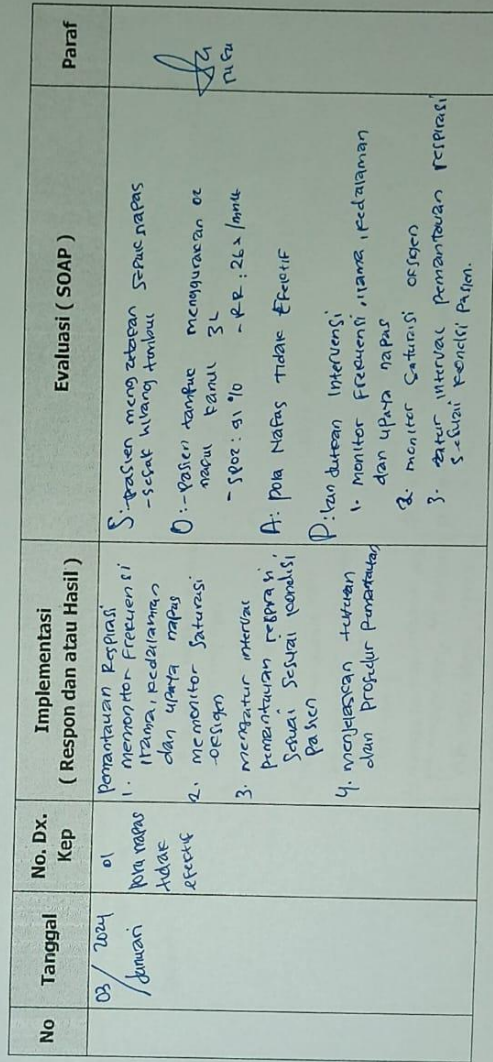 No
Tanggal
No. Dx.
Kep
Implementasi
( Respon dan atau Hasil )
Evaluasi ( SOAP )
Paraf
03/ 2024
/Januari
01
pola napas
tidak
efektif
Pemantauan Respirasi
1. memonitor Frekuensi
irama, kedalaman
dan upaya napas
2. memonitor saturasi
oksigen
3. mengatur interval
pemantauan respirasi
sesuai sesuai kondisi
pasien
4. menjelaskan tujuan
dan prosedur pemantauan
S:-pasien mengatakan sesak napas
- sesak hilang timbul
O:-pasien tampak menggunakan O2
nasal kanul 3L
- SPO2: 91 % - RR: 26 x /mnt
A: pola Nafas tidak Efektif
P: lanjutkan Intervensi
1. monitor Frekuensi, irama, kedalaman
dan upaya napas
2. monitor saturasi oksigen
3. atur interval pemantauan respirasi
sesuai kondisi pasien.